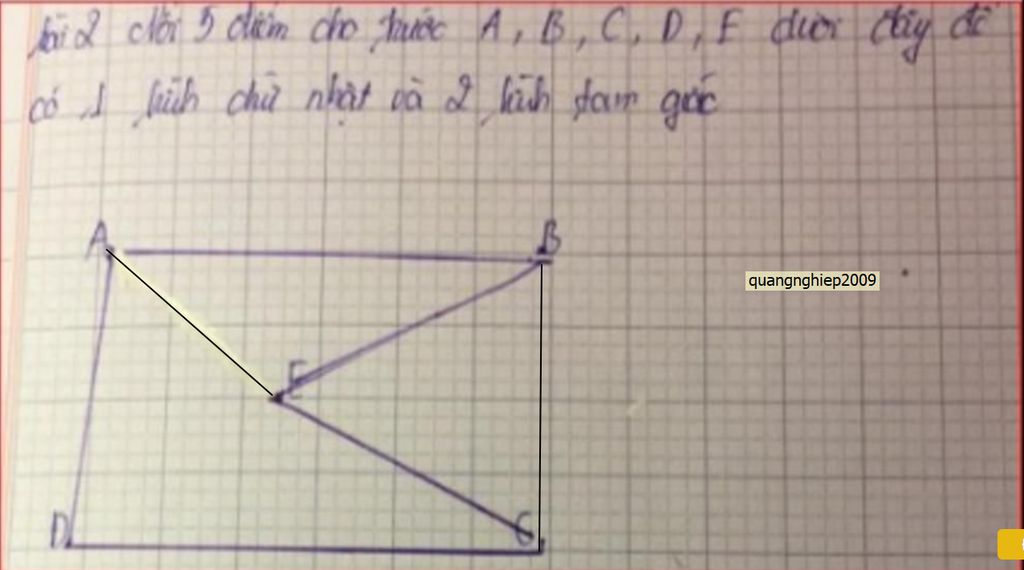 bài 2 Nối 5 điểm cho trước A, B, C, D, E dưới đây để
có 1 hình chữ nhật và 2 hình tam giác
A
B
quangnghiep2009
E
D
C